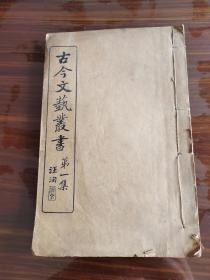 古今文藝叢書
第一集
汪洵